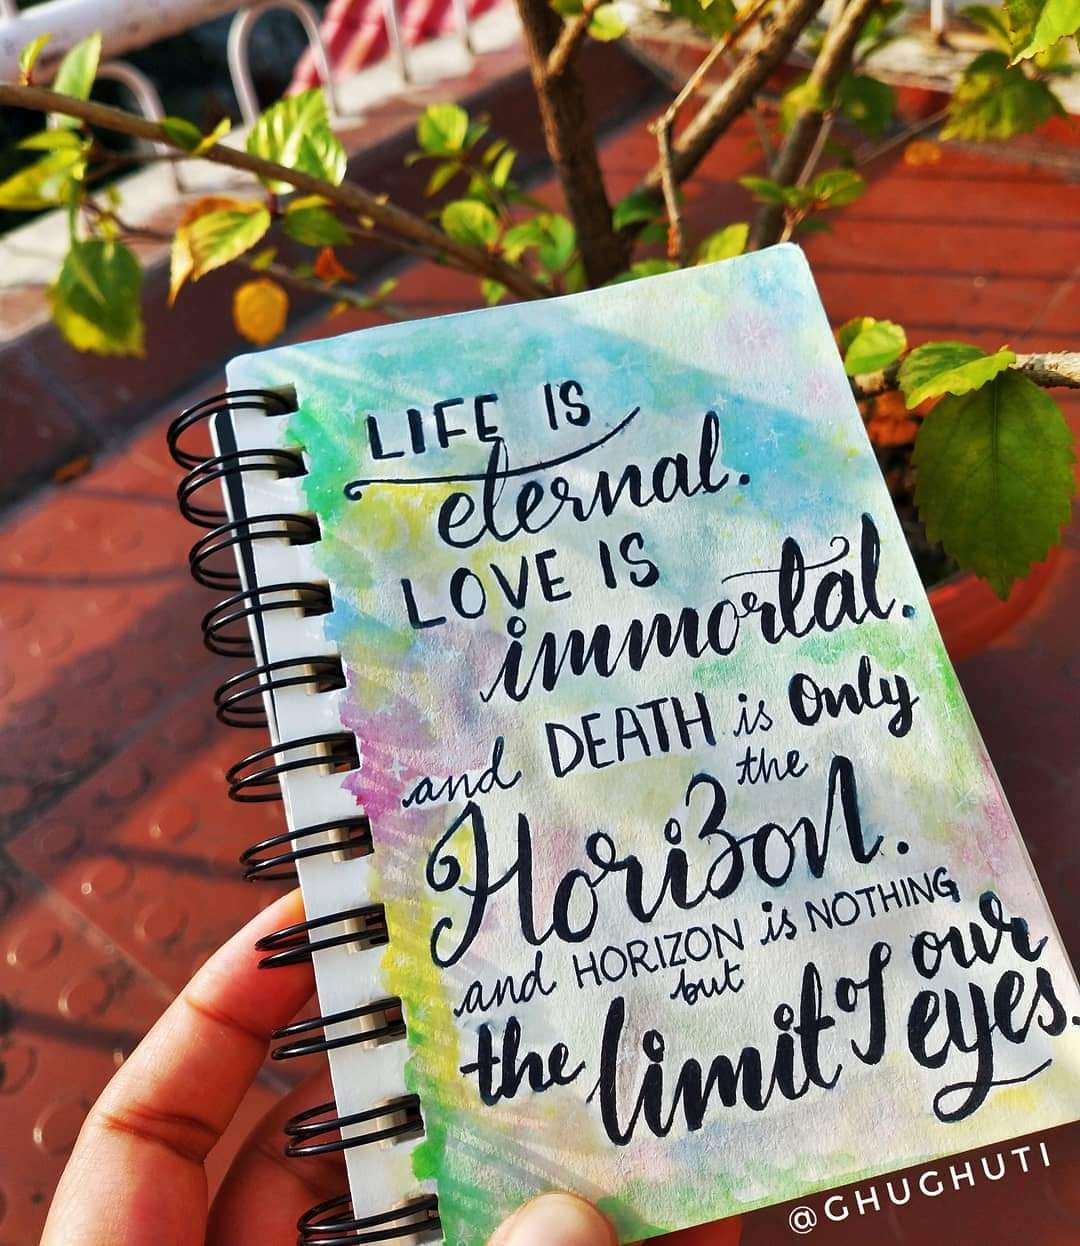 LIFE IS
eternal.
LOVE IS
immortal.
and DEATH is only
the
Horizon.
and HORIZON is NOTHING
but
the limit of our
eyes.
@GHUGHUTI